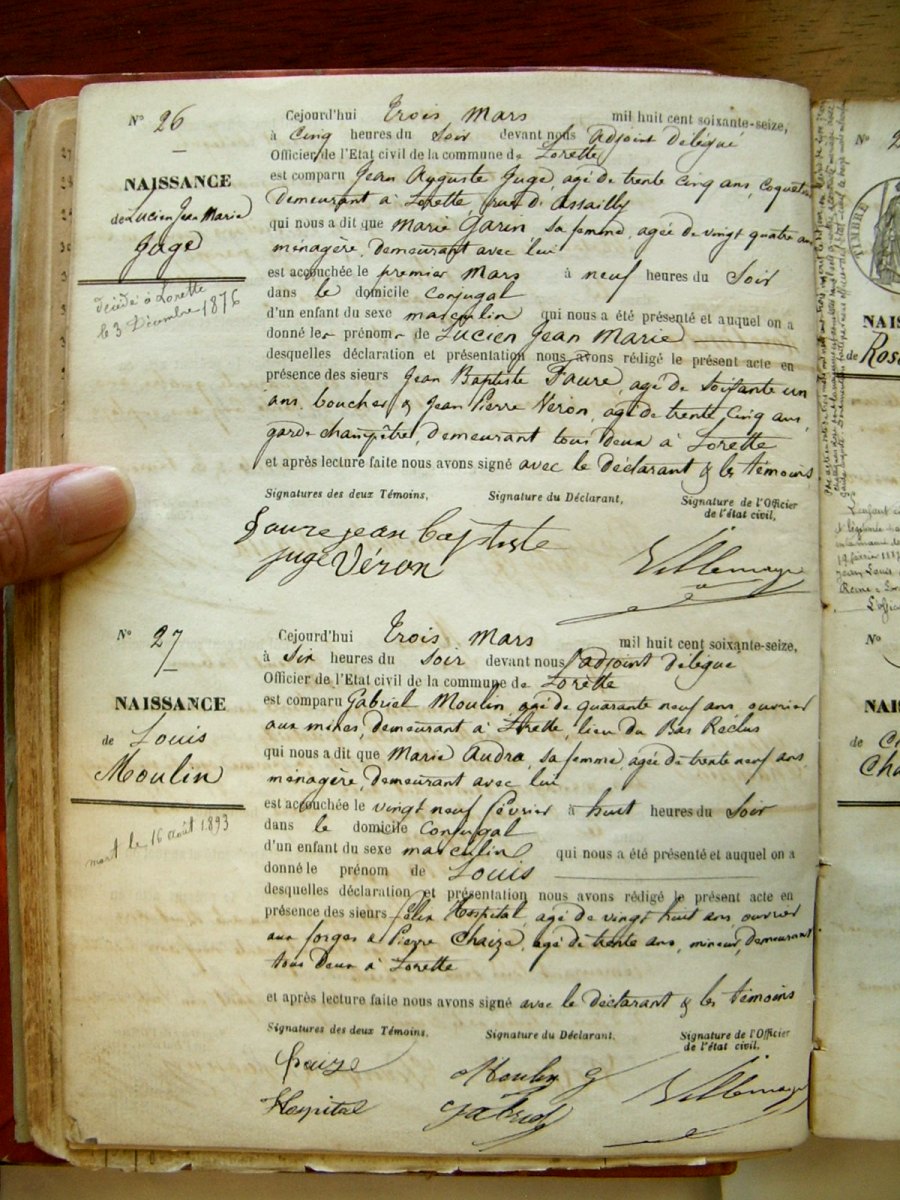 N° 26
NAISSANCE
de Lucien Jean Marie
Juge
décédé à Lorette
le 3 Décembre 1876
Cejourd'hui trois Mars mil huit cent soixante-seize,
à Cinq heures du Soir devant nous adjoint délégué
Officier de l'Etat civil de la commune de Lorette
est comparu Jean Auguste Juge, agé de trente cinq ans,
demeurant à Lorette, rue d'Assailly
qui nous a dit que Marie Garin, sa femme, agée de vingt quatre ans
ménagère, demeurant avec lui
est accouchée le premier Mars à neuf heures du Soir
dans le domicile Conjugal
d'un enfant du sexe masculin qui nous a été présenté et auquel on a
donné les prénoms de Lucien Jean Marie
desquelles déclaration et présentation nous avons rédigé le présent acte en
présence des sieurs Jean Baptiste Faure, agé de Soixante un
ans, boucher & Jean Pierre Véron, agé de trente Cinq ans,
garde champêtre, demeurant tous deux à Lorette
et après lecture faite nous avons signé avec le déclarant & les témoins
Signatures des deux Témoins, Signature du Déclarant, Signature de l'Officier
de l'état civil,
faure jean baptiste
juge Véron Villemagne
N° 27
NAISSANCE
de Louis
Moulin
mort le 16 août 1893
Cejourd'hui trois Mars mil huit cent soixante-seize,
à Six heures du Soir devant nous l'adjoint délégué
Officier de l'Etat civil de la commune de Lorette
est comparu Gabriel Moulin, agé de quarante neuf ans ouvrier
aux mines, demeurant à Lorette, lieu du Bas Réclus
qui nous a dit que Marie Audra, sa femme, agée de trente neuf ans
ménagère, demeurant avec lui
est accouchée le vingt neuf février à huit heures du Soir
dans le domicile Conjugal
d'un enfant du sexe masculin qui nous a été présenté et auquel on a
donné le prénom de Louis
desquelles déclaration et présentation nous avons rédigé le présent acte en
présence des sieurs félix Hospital, agé de vingt huit ans ouvrier
aux forges & Pierre Chaize, agé de trente ans, mineur, demeurant
tous deux à Lorette
et après lecture faite nous avons signé avec le déclarant & les témoins
Signatures des deux Témoins, Signature du Déclarant, Signature de l'Officier
de l'état civil,
Chaize Moulin G Villemagne
Hospital gabriel
N° 2
TIMBRE
NAIS
de Rose
N°
NAIS
de
Cha